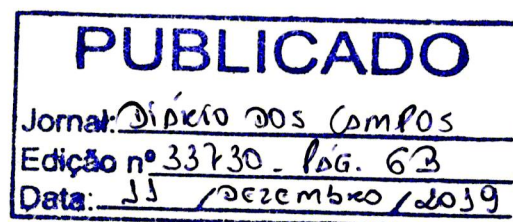 PUBLICADO
Jornal: DIÁRIO DOS CAMPOS
Edição nº 33730 - PÁG. 6B
Data: 11 / DEZEMBRO / 2019